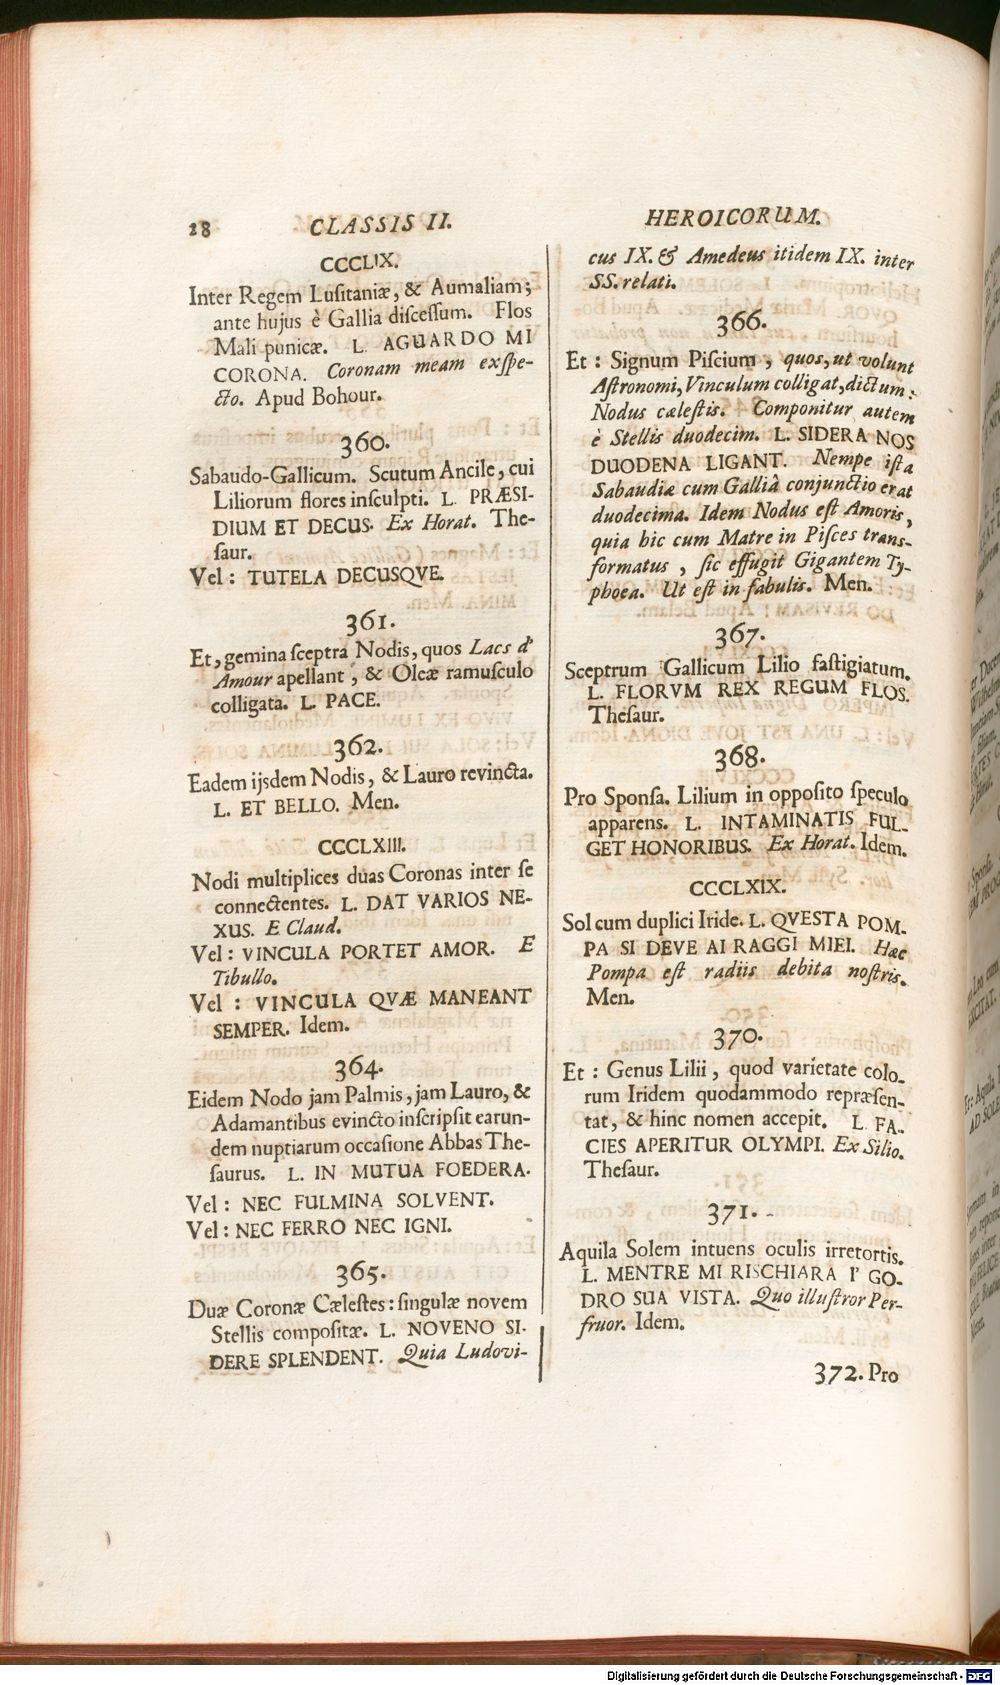 28 CLASSIS II.
CCCLIX.
Inter Regem Luſitaniæ, & Aumaliam;
ante hujus è Gallia diſceſſum. Flos
Mali punicæ. L. AGUARDO MI
CORONA. Coronam meam exſpe-
cto. Apud Bohour.
360.
Sabaudo-Gallicum. Scutum Ancile, cui
Liliorum flores inſculpti. L. PRÆSI-
DIUM ET DECUS. Ex Horat. The-
ſaur.
Vel: TUTELA DECUSQVE.
361.
Et, gemina ſceptra Nodis, quos Lacs d'
Amour apellant, & Oleæ ramuſculo
colligata. L. PACE.
362.
Eadem ijsdem Nodis, & Lauro revincta.
L. ET BELLO. Men.
CCCLXIII.
Nodi multiplices duas Coronas inter ſe
connectentes. L. DAT VARIOS NE-
XUS. E Claud.
Vel: VINCULA PORTET AMOR. E
Tibullo.
Vel: VINCULA QVÆ MANEANT
SEMPER. Idem.
364.
Eidem Nodo jam Palmis, jam Lauro, &
Adamantibus evincto inſcripſit earun-
dem nuptiarum occaſione Abbas The-
ſaurus. L. IN MUTUA FOEDERA.
Vel: NEC FULMINA SOLVENT.
Vel: NEC FERRO NEC IGNI.
365.
Duæ Coronæ Cæleſtes: ſingulæ novem
Stellis compoſitæ. L. NOVENO SI-
DERE SPLENDENT. Quia Ludovi-
HEROICORUM.
cus IX. & Amedeus itidem IX. inter
SS. relati.
366.
Et: Signum Piſcium, quos, ut volunt
Aſtronomi, Vinculum colligat, dictum:
Nodus cæleſtis. Componitur autem
è Stellis duodecim. L. SIDERA NOS
DUODENA LIGANT. Nempe iſta
Sabaudiæ cum Galliâ conjunctio erat
duodecima. Idem Nodus eſt Amoris,
quia hic cum Matre in Piſces trans-
formatus, ſic effugit Gigantem Ty-
phoea. Ut eſt in fabulis. Men.
367.
Sceptrum Gallicum Lilio faſtigiatum.
L. FLORVM REX REGUM FLOS.
Theſaur.
368.
Pro Sponſa. Lilium in oppoſito ſpeculo
apparens. L. INTAMINATIS FUL-
GET HONORIBUS. Ex Horat. Idem.
CCCLXIX.
Sol cum duplici Iride. L. QVESTA POM-
PA SI DEVE AI RAGGI MIEI. Hæc
Pompa eſt radiis debita noſtris.
Men.
370.
Et: Genus Lilii, quod varietate colo-
rum Iridem quodammodo repræſen-
tat, & hinc nomen accepit. L. FA-
CIES APERITUR OLYMPI. Ex Silio.
Theſaur.
371.
Aquila Solem intuens oculis irretortis.
L. MENTRE MI RISCHIARA I' GO-
DRO SUA VISTA. Quo illuſtror Per-
fruor. Idem.
372. Pro
Digitalisierung gefördert durch die Deutsche Forschungsgemeinschaft - DFG